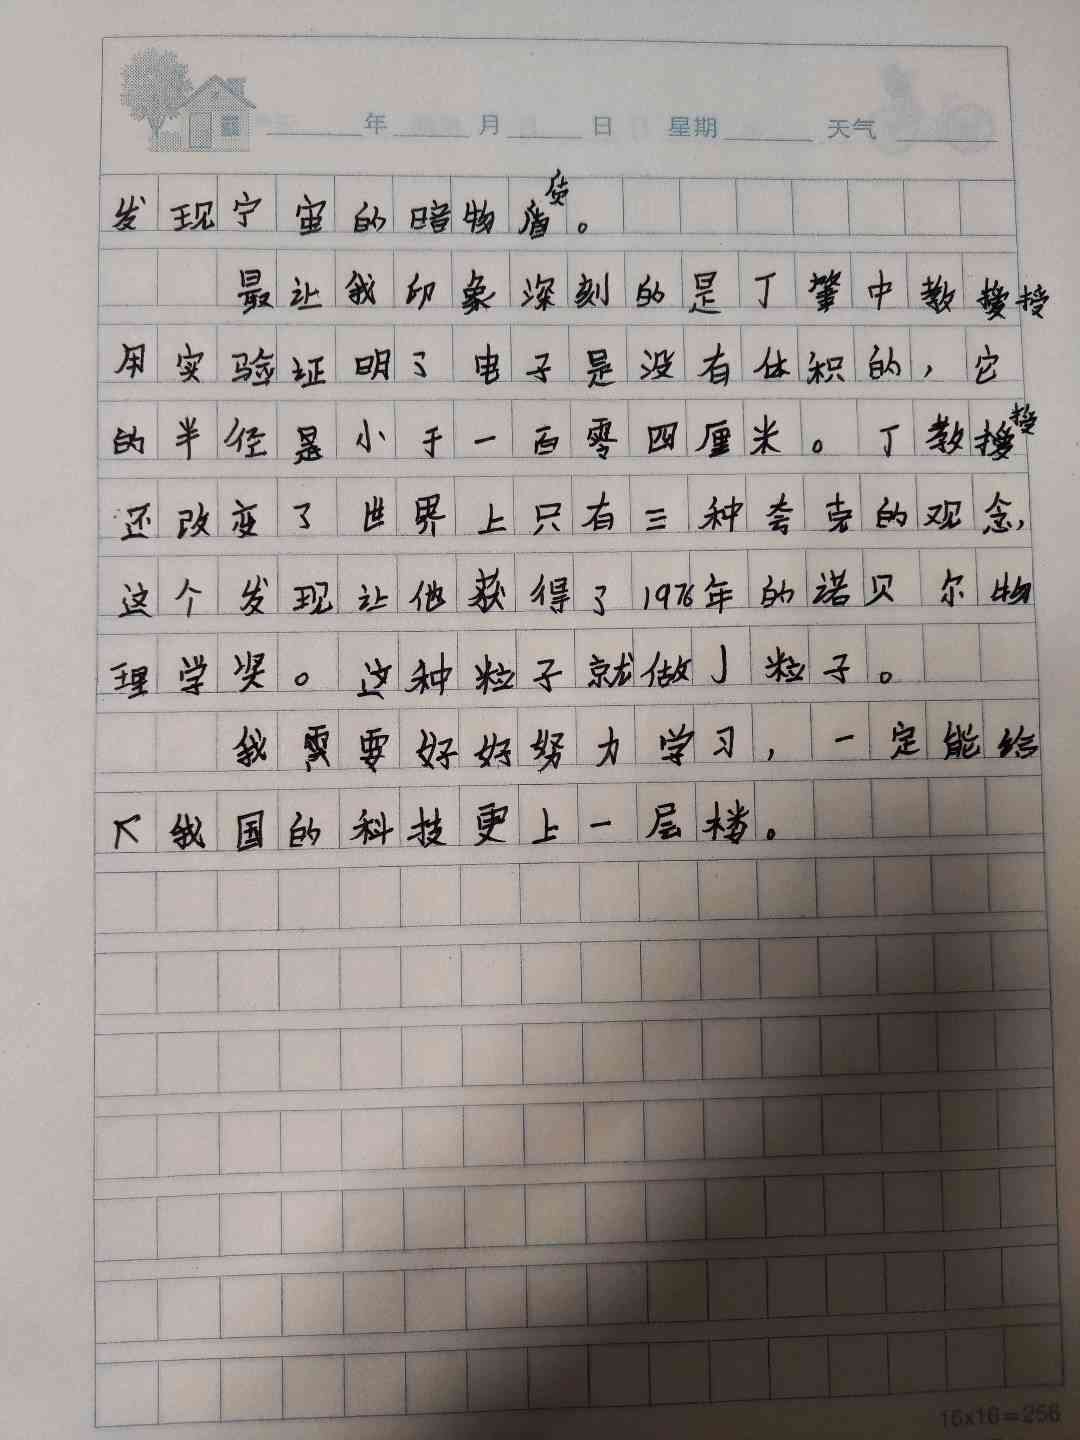 年 月 日 星期 天气
发现宁宙的暗物质。
最让我印象深刻的是丁肇中教授
用实验证明了电子是没有体积的，它
的半径是小于一百零四厘米。丁教授
还改变了世界上只有三种夸克的观念，
这个发现让他获得了1976年的诺贝尔物
理学奖。这种粒子就做J粒子。
我需要好好努力学习，一定能给
我国的科技更上一层楼。
16x16=256